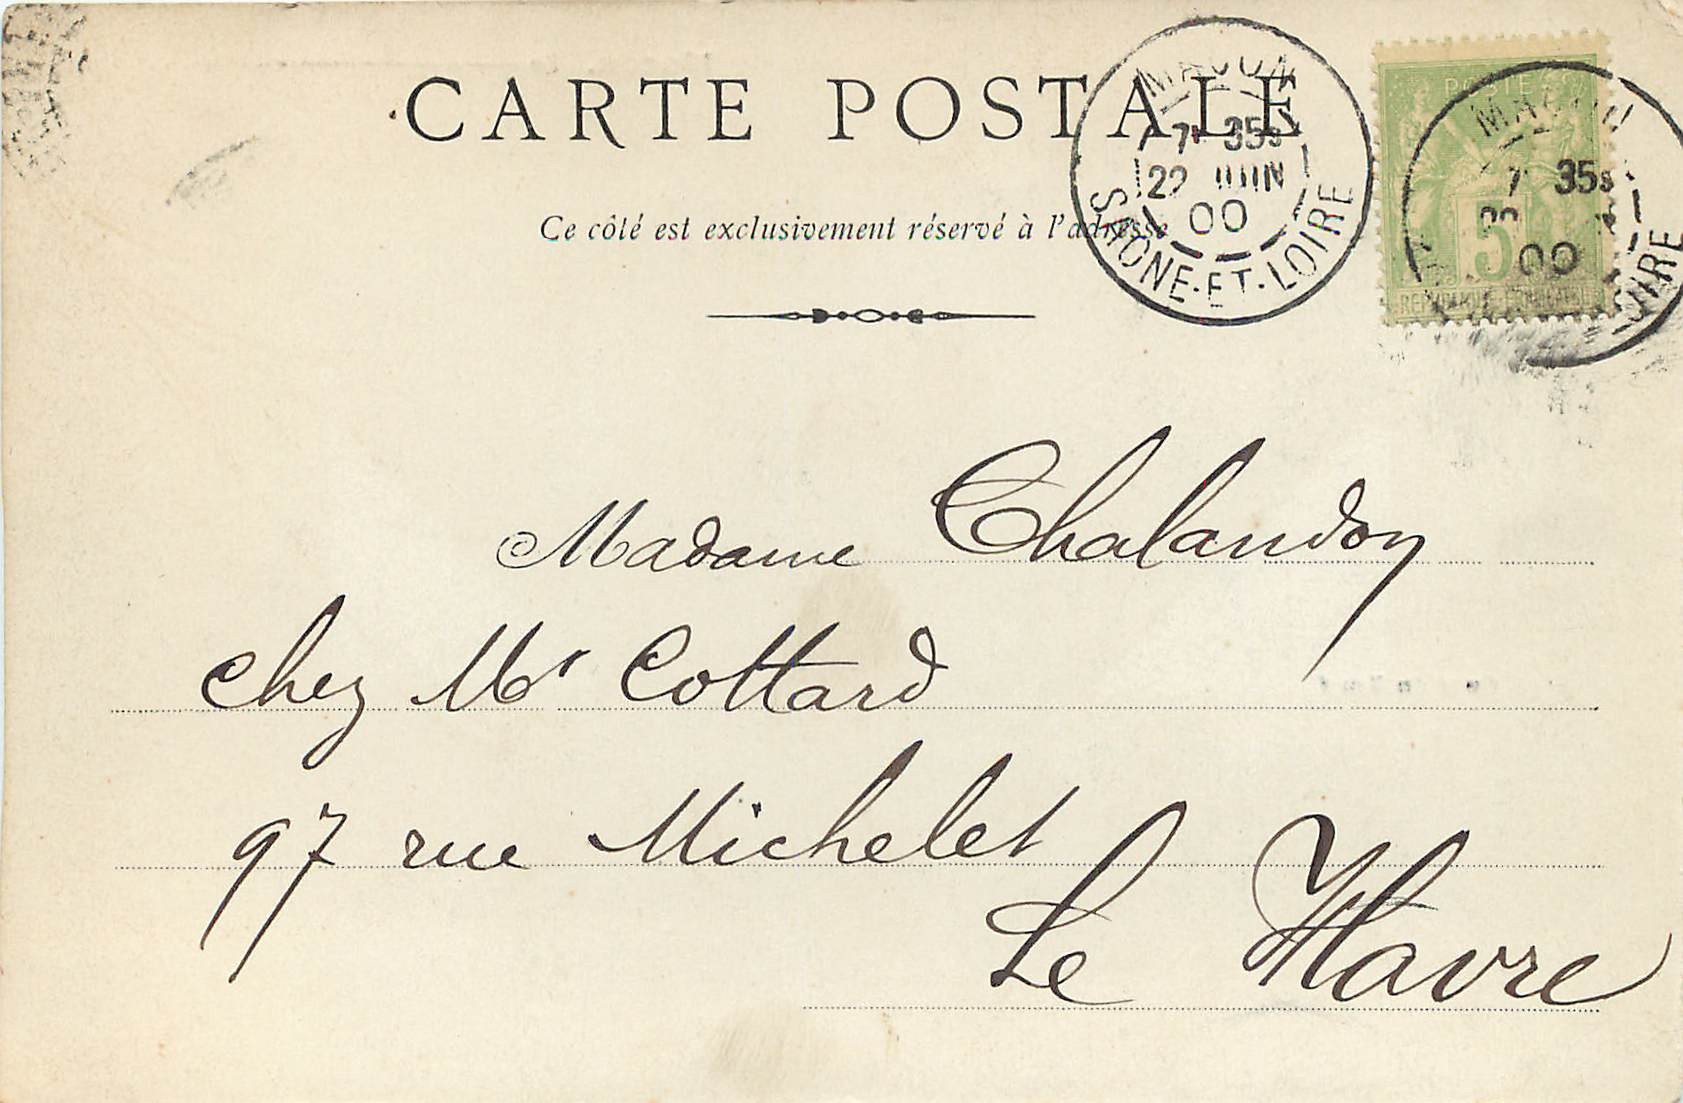 CARTE POSTALE
Ce côté est exclusivement réservé à l'adresse
MACON
7E 35S
22 JUIN
00
SAONE-ET-LOIRE
POSTE
5
MACON
7 35S
00
LOIRE
Madame Chalandon
chez Mr Cottard
97 rue Michelet
Le Havre